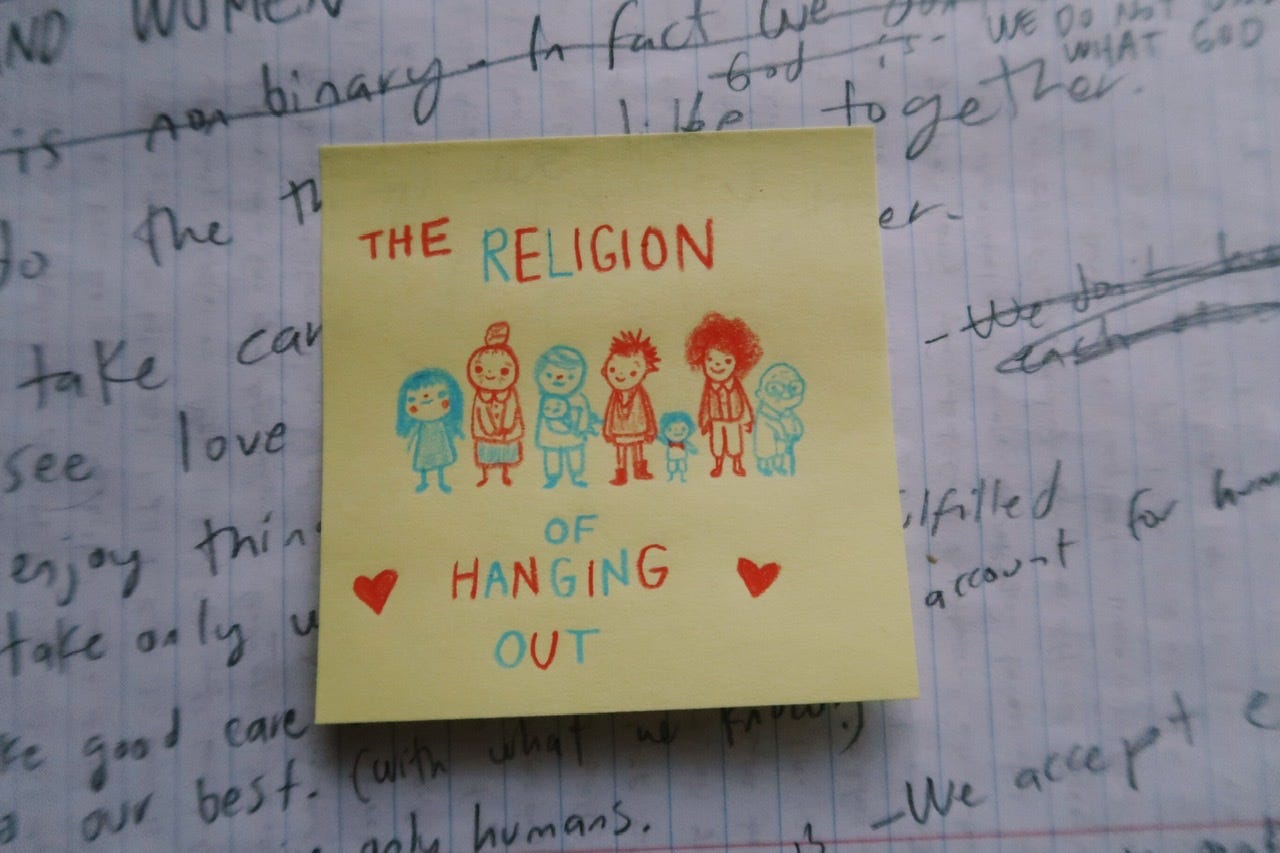 AND WOMEN
is non binary - In fact we don
God is -
WE DO NOT
WHAT GOD
like together.
do the th
er.
THE RELIGION
- We don't
each
take car
see love
enjoy thin
OF
ulfilled
for huma
account
HANGING
take only w
OUT
ke good care
(with what we know!)
our best.
- We accept e
only humans.